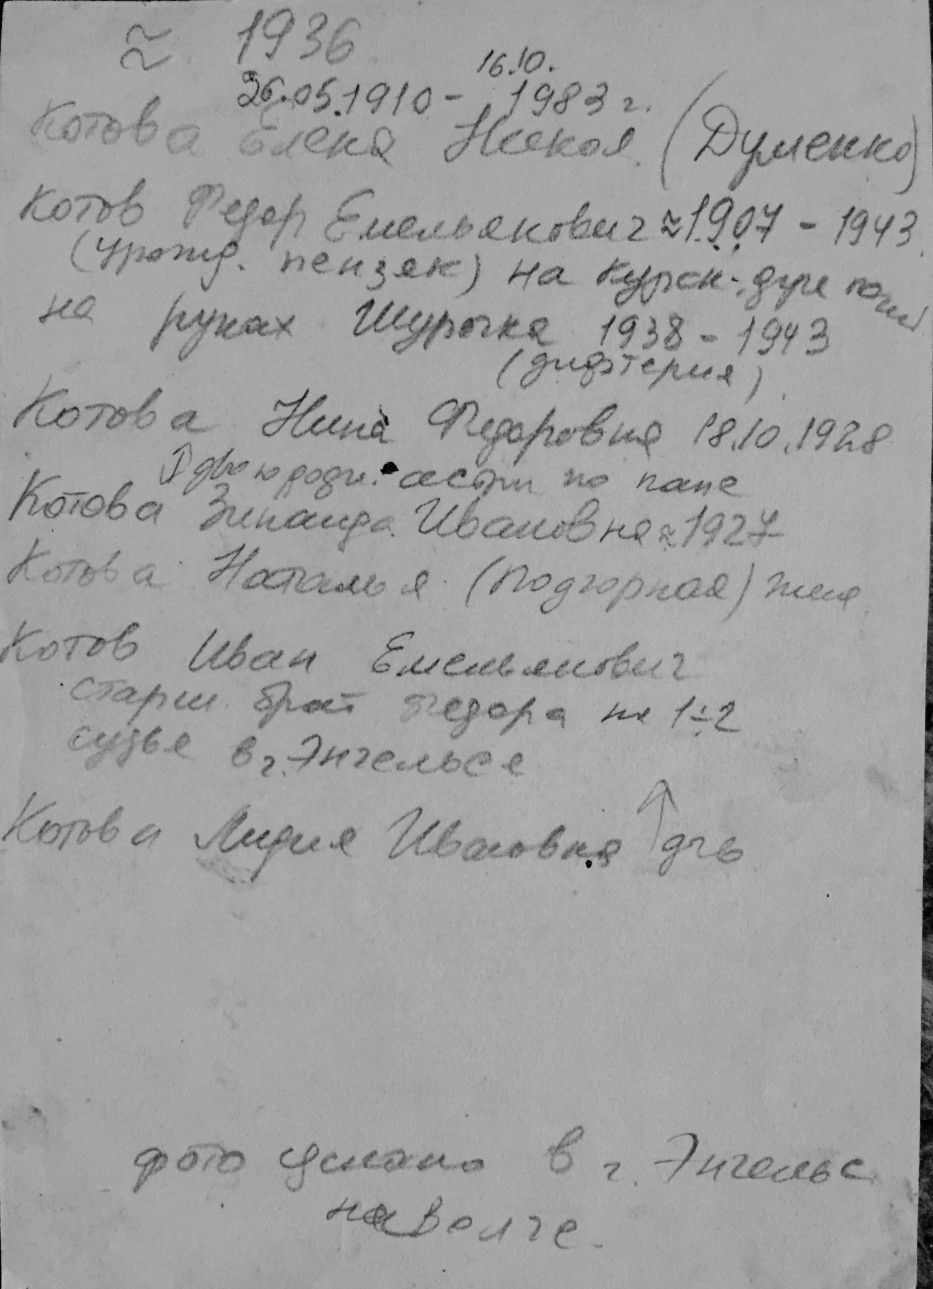 ≈ 1936
16.10.
26.05.1910 - 1983 г.
Котова Елена Никол. (Думенко)
Котов Федор Емельянович ≈ 1907 - 1943
(урожд. пензяк) на Курск. дуге погиб
на руках Шурочка 1938 - 1943
(дифтерия)
Котова Нина Федоровна 18.10.1928
двоюродн. сестры по папе
Котова Зинаида Ивановна ≈ 1927
Котова Наталья (Подгорная) жена
Котов Иван Емельянович
старш. брат Федора на 1÷2
судья в г. Энгельсе
Котова Лидия Ивановна ↑ дчь
фото сделано в г. Энгельс
на Волге.